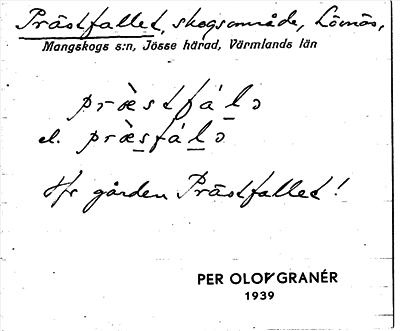 Prästfallet, skogsområde, Lönnås,
Mangskogs s:n, Jösse härad, Värmlands län
præ̀stfáƚə
el. præ̀sfáƚə
Jfr gården Prästfallet!
PER OLOF GRANÉR
1939